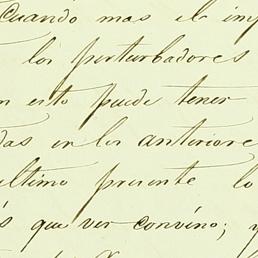 Cuando mas el imp
los perturbadores
n esto puede tener
das en los anteriore
ultimo presente lo
s que ver convino; y